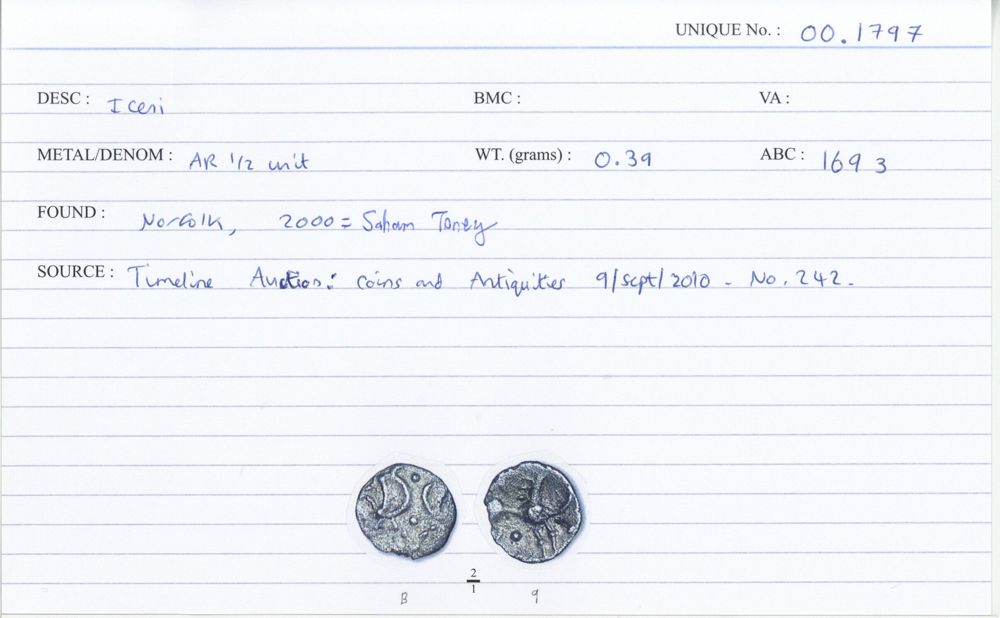 UNIQUE No. : 00.1797
DESC : Iceni BMC : VA :
METAL/DENOM : AR 1/2 unit WT. (grams) : 0.39 ABC : 1693
FOUND : Norfolk, 2000 = Saham Toney
SOURCE : Timeline Auction: Coins and Antiquities 9/Sept/2010 - No. 242.
2
1
B 9